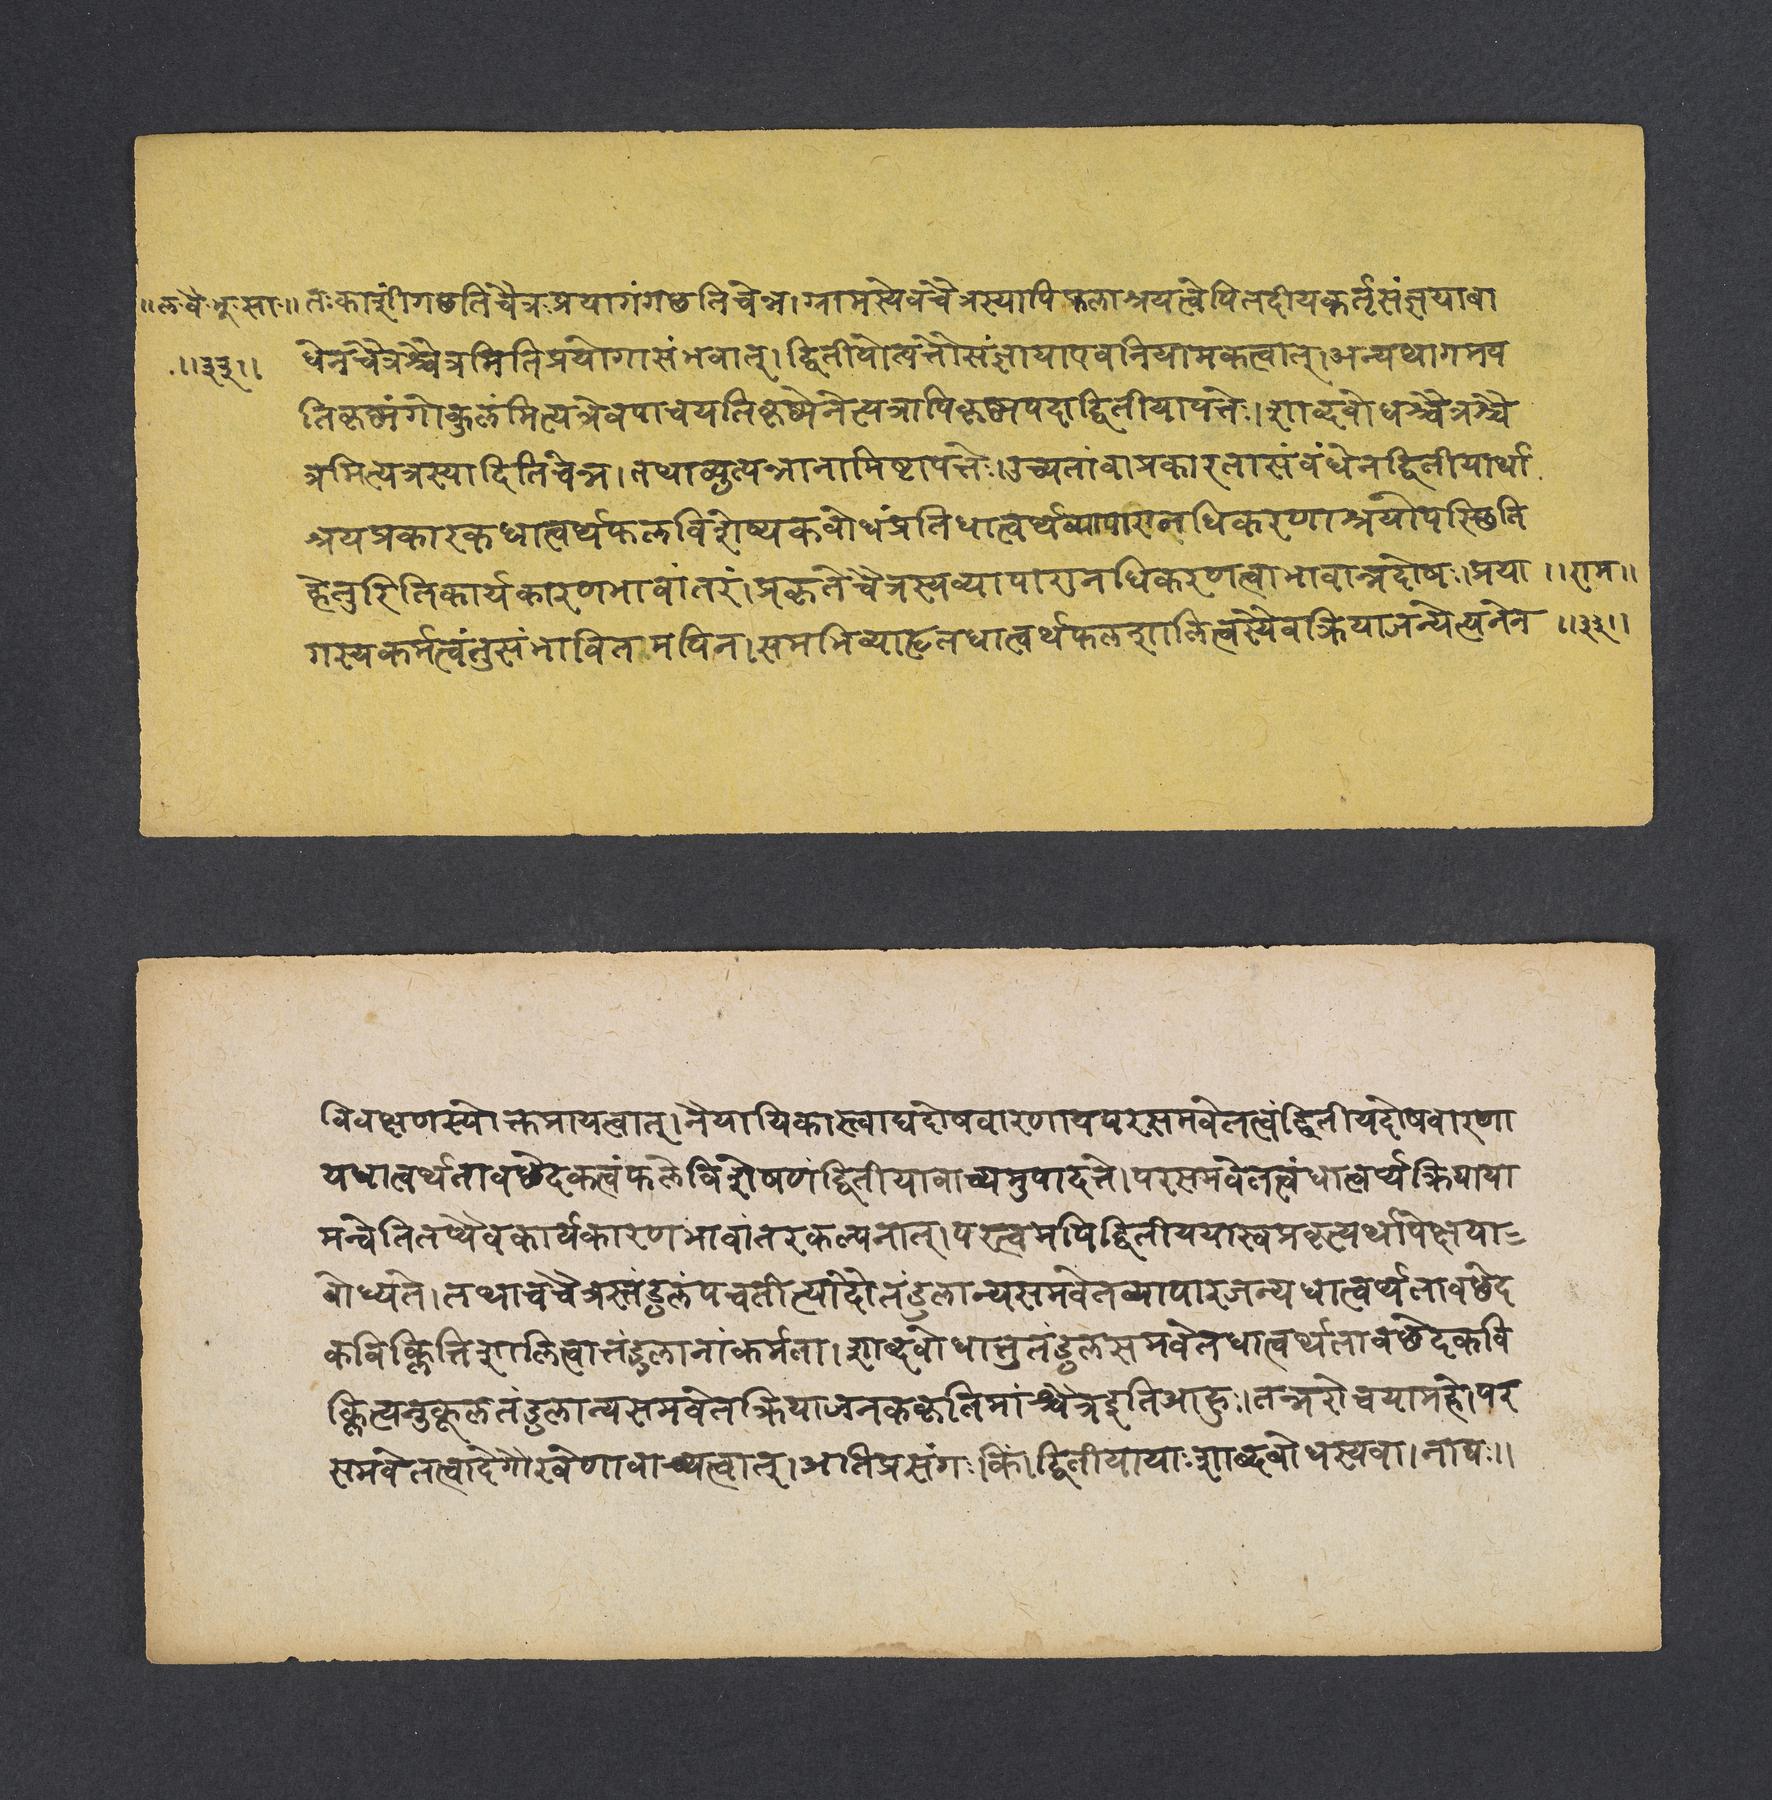 ॥ल·वै·भू·सा·॥ तः काशींगछतिचैत्रःप्रयागंगछतिचेन्न।ग्रामस्येवचैत्रस्यापिफलाश्रयत्वेपितदीयकर्तृसंज्ञयाबा
॥३३॥ धेनचैत्रश्चैत्रमितिप्रयोगासंभवात्।द्वितीयोत्पत्तौसंज्ञायाएवनियामकत्वात्।अन्यथागमय
तिकृष्णंगोकुलंमित्यत्रेवपाचयतिकृष्णेनेत्यत्रापिकृष्णपदाद्वितीयापत्तेः।शाब्दबोधश्चैत्रश्चै
त्रमित्यत्रस्यादितिचेन्न।तथाव्युत्पन्नानामिष्टापत्तेः।उच्यतांवाप्रकारतासंबंधेनद्वितीयार्था
श्रयप्रकारकधात्वर्थफलविशेष्यकबोधंप्रतिधात्वर्थव्यापारानधिकरणाश्रयोपस्थिति
र्हेतुरितिकार्यकारणभावांतरं।प्रकृतेचैत्रस्यव्यापारानधिकरणत्वाभावान्नदोषः।प्रया ॥राम॥
गस्यकर्मत्वंतुसंभावितमपिन।समभिव्याहृतधात्वर्थफलशालित्वस्यैवक्रियाजन्येत्यनेन ॥३३॥
विवक्षणस्योक्तप्रायत्वात्।नैयायिकास्त्वाद्यदोषवारणायपरसमवेतत्वंद्वितीयदोषवारणा
यधात्वर्थतावछेदकत्वंफलेविशेषणंद्वितीयावाच्यमुपाददते।परसमवेतत्वंधात्वर्थक्रियाया
मन्वेतितथैवकार्यकारणभावांतरकल्पनात्।परत्वमपिद्वितीययास्वप्रकृत्यर्थापेक्षया-
बोध्यते।तथाचचैत्रस्तंडुलंपचतीत्यादौतंडुलान्यसमवेतव्यापारजन्यधात्वर्थतावछेद
कविक्लित्तिशालित्वात्तंडुलानांकर्मता।शाब्दबोधात्तुतंडुलसमवेतधात्वर्थतावछेदकवि
क्लित्यनुकूलतंडुलान्यसमवेतक्रियाजनककृतिमांश्चैत्रइतिआहुः।तन्नरोचयामहे।पर
समवेतत्वादेर्गौरवेणावाच्यत्वात्।अतिप्रसंगःकिं।द्वितीयायाःशाब्दबोधस्यवा।नाद्यः॥